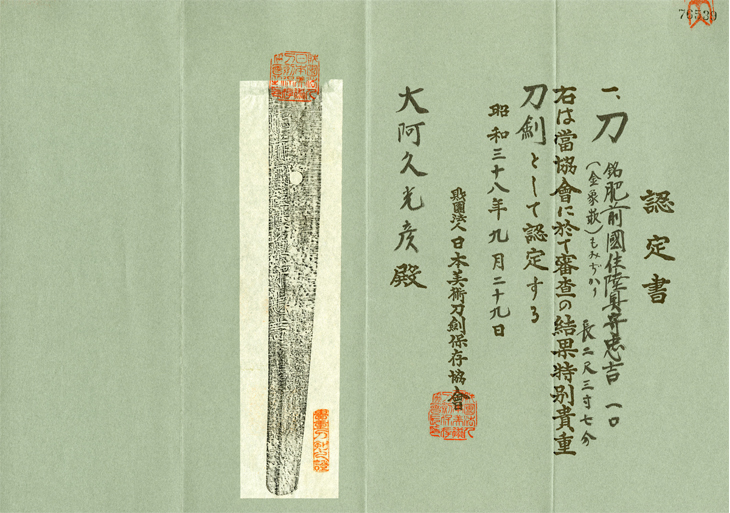 76539
認定書
一、刀 銘肥前國住陸奥守忠吉 一口
(金象嵌)もみぢがり 長二尺三寸七分
右は當協會に於て審査の結果特別貴重
刀劍として認定する
昭和三十八年九月二十九日
財團法人日本美術刀劍保存協會
大阿久光彦殿